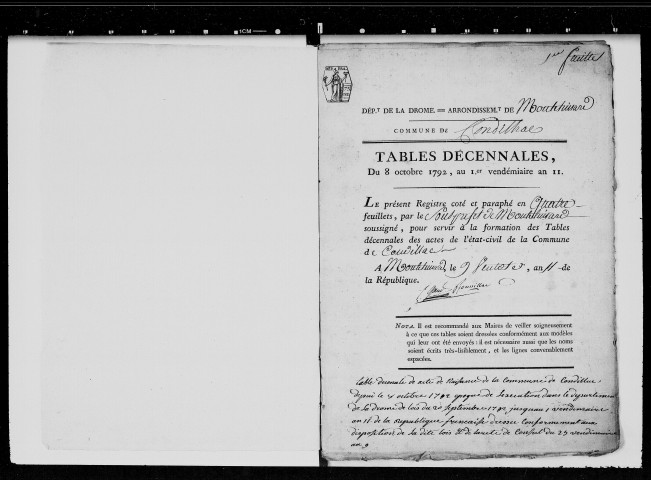 1CM
1ere feuille
DÉP.T DE LA DROME. = ARRONDISSEM.T DE Montelimard
COMMUNE DE Condillac
TABLES DÉCENNALES,
Du 8 octobre 1792, au 1.er vendémiaire an 11.
LE présent Registre coté et paraphé en Quatre
feuillets, par le Sousprefet de Montelimard
soussigné, pour servir à la formation des Tables
décennales des actes de l'état-civil de la Commune
de Condillac
A Montelimard, le 9 Ventose, an 11 de
la République.
NOTA. Il est recommandé aux Maires de veiller soigneusement
à ce que ces tables soient dressées conformément aux modèles
qui leur ont été envoyés : il est nécessaire aussi que les noms
soient écrits très-lisiblement, et les lignes convenablement
espacées.
table decennale de acte de Naissance de la Commune de Condillac
depuis le 8 octobre 1792 epoque de lexecution dans le departement
de la drome de lois du 20 septembre 1792 jusquau 1 vendemiaire
an 11 de la republique francaise dressee conformement aux
disposition de la dite lois et de larreté de Consul du 25 vendemiaire
an 9